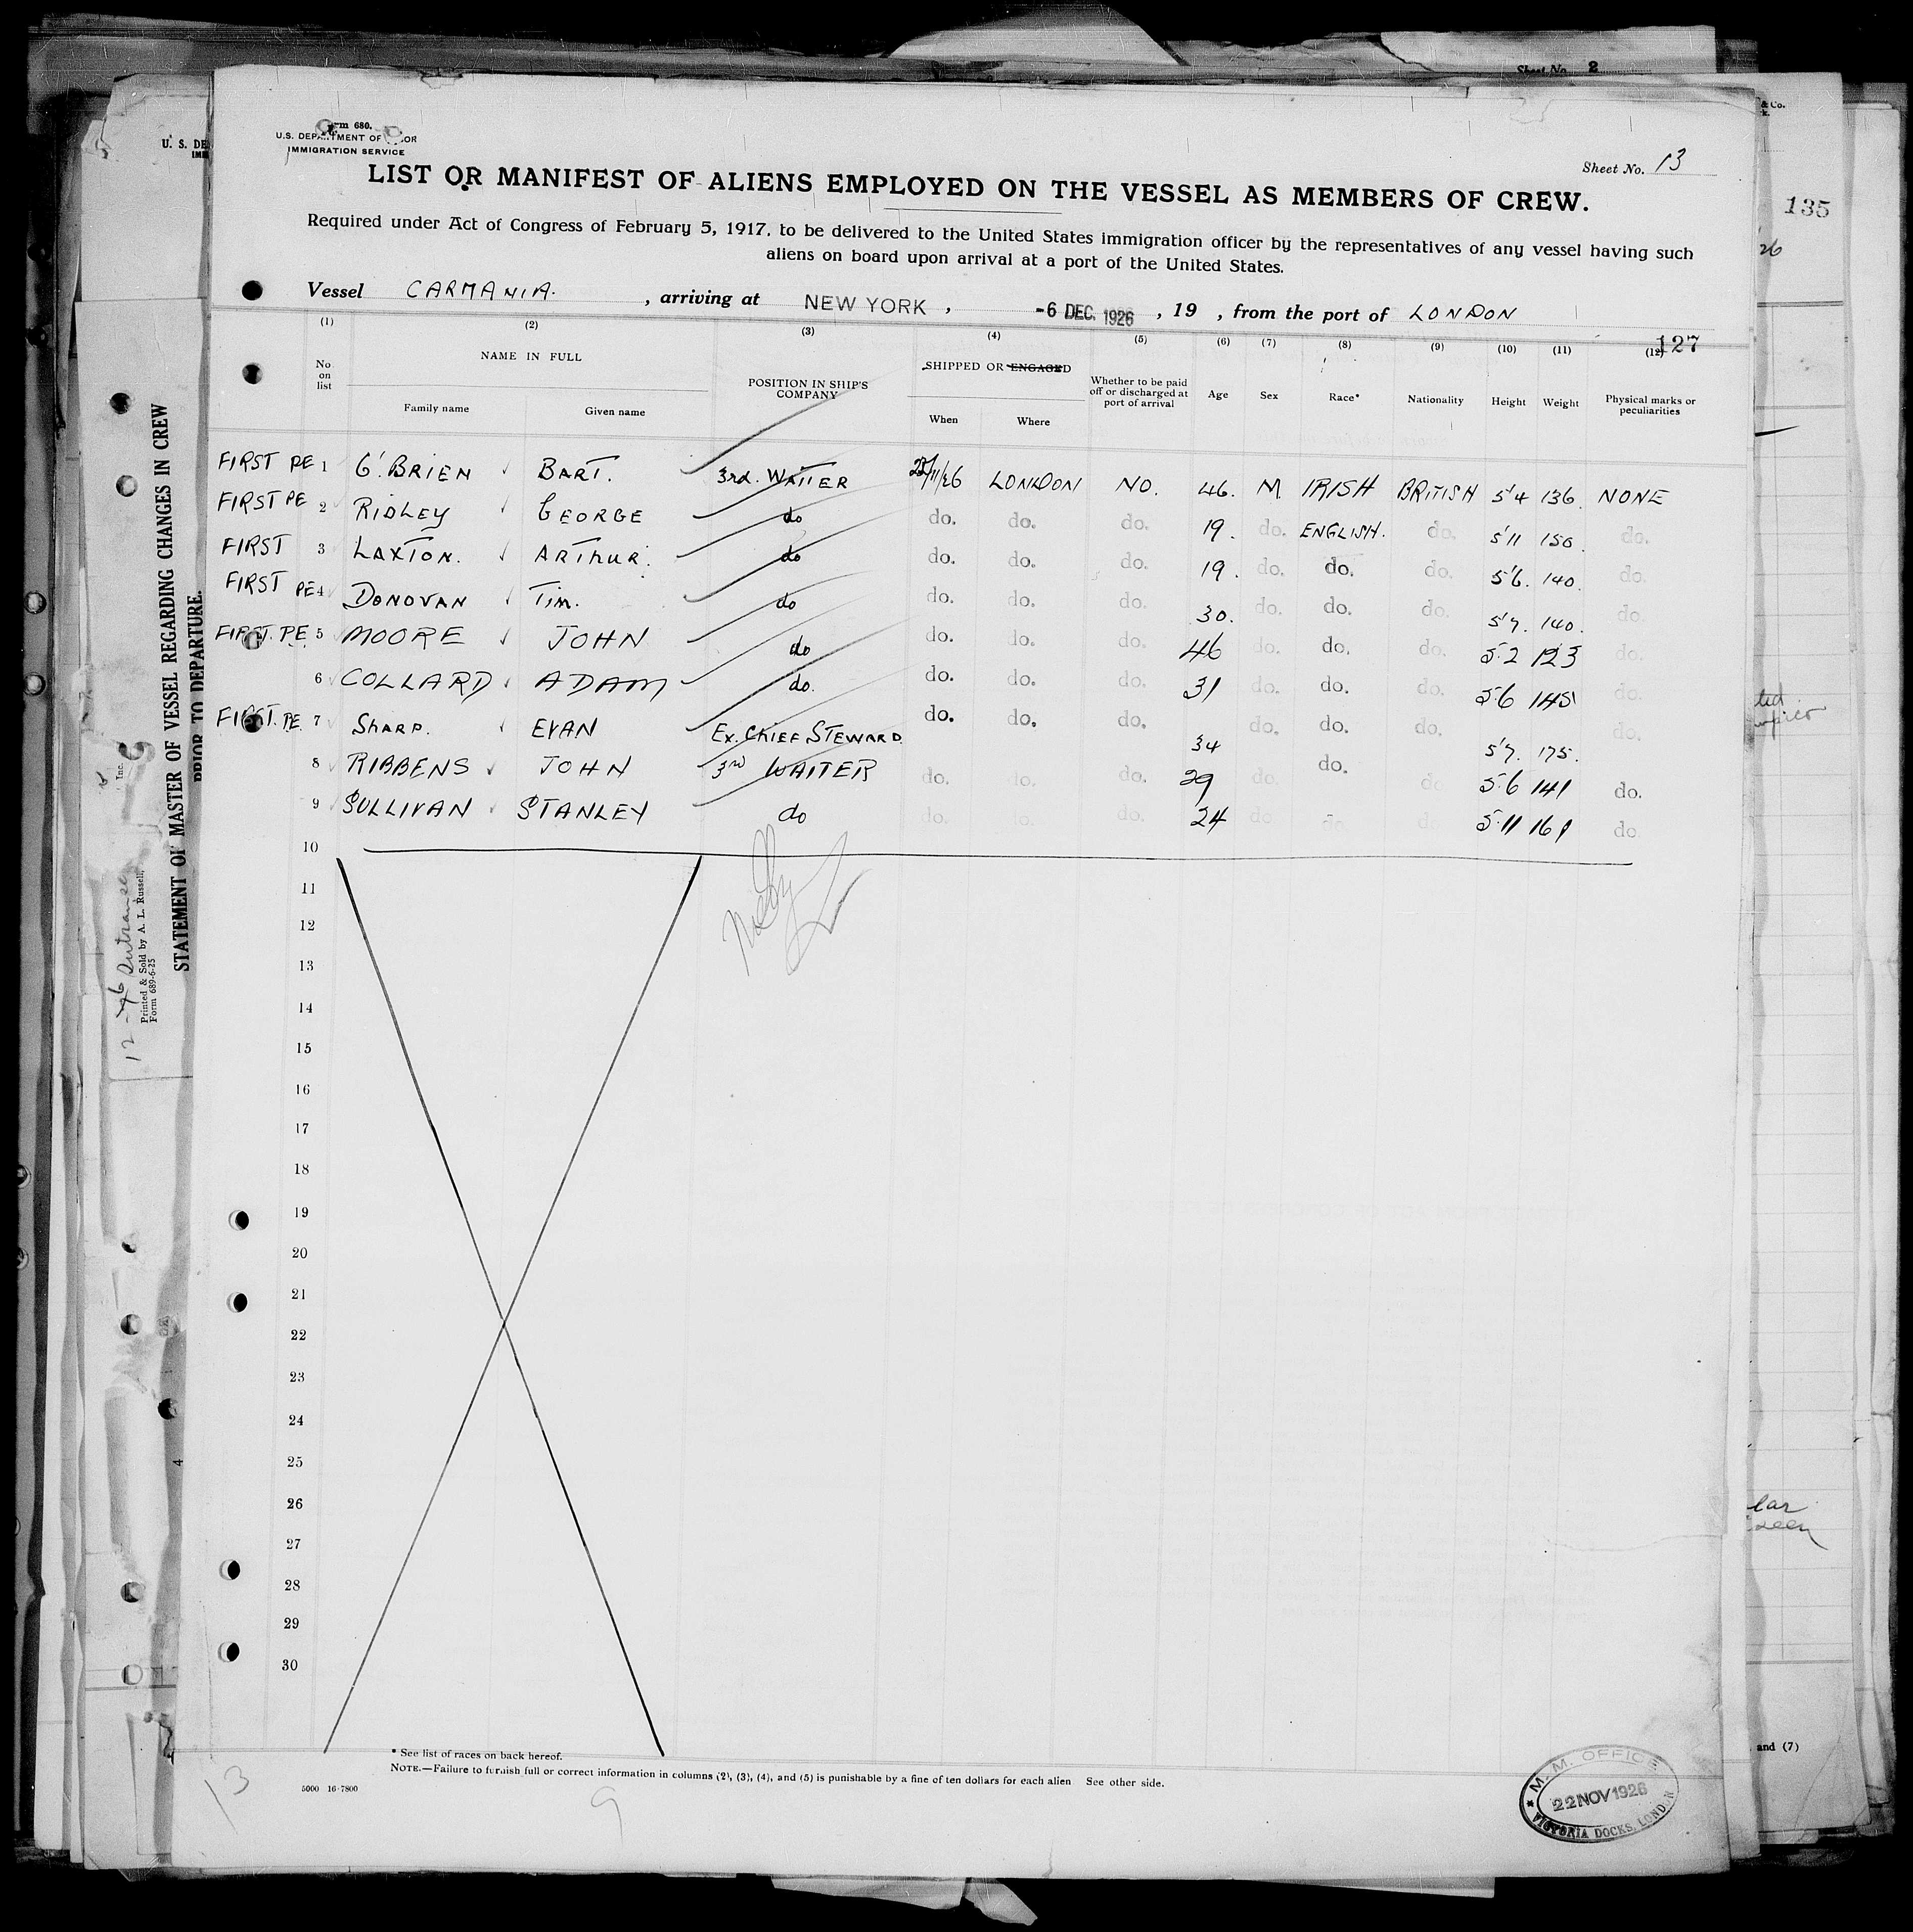 Sheet No. 2
135
26
U. S. DE
Form 680.
U.S. DEPARTMENT OF LABOR
IMMIGRATION SERVICE
Sheet No. 13
LIST OR MANIFEST OF ALIENS EMPLOYED ON THE VESSEL AS MEMBERS OF CREW.
Required under Act of Congress of February 5, 1917, to be delivered to the United States immigration officer by the representatives of any vessel having such
aliens on board upon arrival at a port of the United States.
Vessel CARMANIA. , arriving at NEW YORK , -6 DEC. 1926 , 19 , from the port of LONDON
127
(1) (2) (3) (4) (5) (6) (7) (8) (9) (10) (11) (12)
No on list NAME IN FULL Family name Given name POSITION IN SHIP'S COMPANY SHIPPED OR ENGAGED When Where Whether to be paid off or discharged at port of arrival Age Sex Race* Nationality Height Weight Physical marks or peculiarities
FIRST PE 1 O'BRIEN BART. 3rd. WAITER 22/11/26 LONDON NO. 46. M IRISH BRITISH 5'4 136. NONE
FIRST PE 2 RIDLEY GEORGE do do. do. do. 19. do. ENGLISH. do. 5'11 150. do.
FIRST 3 LAXTON. ARTHUR. do do. do. do. 19. do. do. do. 5'6. 140. do.
FIRST PE 4 DONOVAN TIM. do do. do. do. 30. do. do. do. 5'7. 140. do.
FIRST. PE 5 MOORE JOHN do do. do. do. 46 do. do. do. 5.2 123 do.
6 COLLARD ADAM do. do. do. do. 31 do. do. do. 5.6 145 do.
FIRST. PE. 7 SHARP. EVAN Ex. CHIEF STEWARD. do. do. do. 34 do. do. do. 5'7. 175. do.
8 RIBBENS JOHN 3rd WAITER do. do. do. 29 do. do. do 5.6 141 do.
9 SULLIVAN STANLEY do do. do. do. 24 do do 5.11 161 do.
10
11
12
13
14
15
16
17
18
19
20
21
22
23
24
25
26
27
28
29
30
* See list of races on back hereof.
NOTE.—Failure to furnish full or correct information in columns (2), (3), (4), and (5) is punishable by a fine of ten dollars for each alien See other side.
5000 16-7800
13
9
M. M. OFFICE
22 NOV 1926
VICTORIA DOCKS, LONDON
STATEMENT OF MASTER OF VESSEL REGARDING CHANGES IN CREW
PRIOR TO DEPARTURE.
Printed & Sold by A. L. Russell, Inc.
Form 689-6-25
4
and (7)